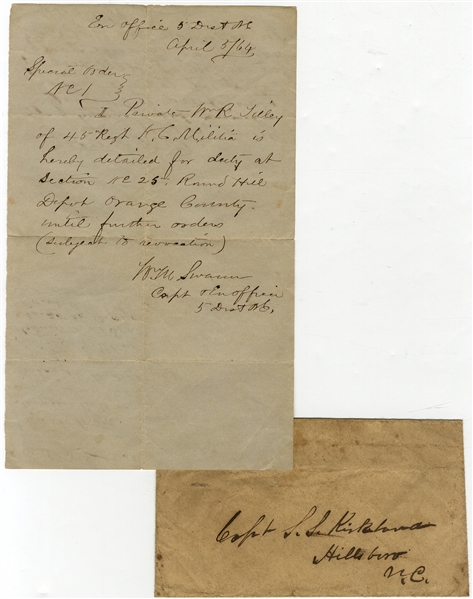 En Office 5 Dist NC
April 5/64
Special Order
No 1
I Private Wm R. Tilley
of 45 Regt N. C. Militia is
hereby detailed for duty at
Section No 25. Round Hill
Depot Orange County.
until further orders
(subject to revocation)
Wm M Swann
Capt & En Officer
5 Dist NC,
Capt S. S. Kirkland
Hillsboro
N.C.